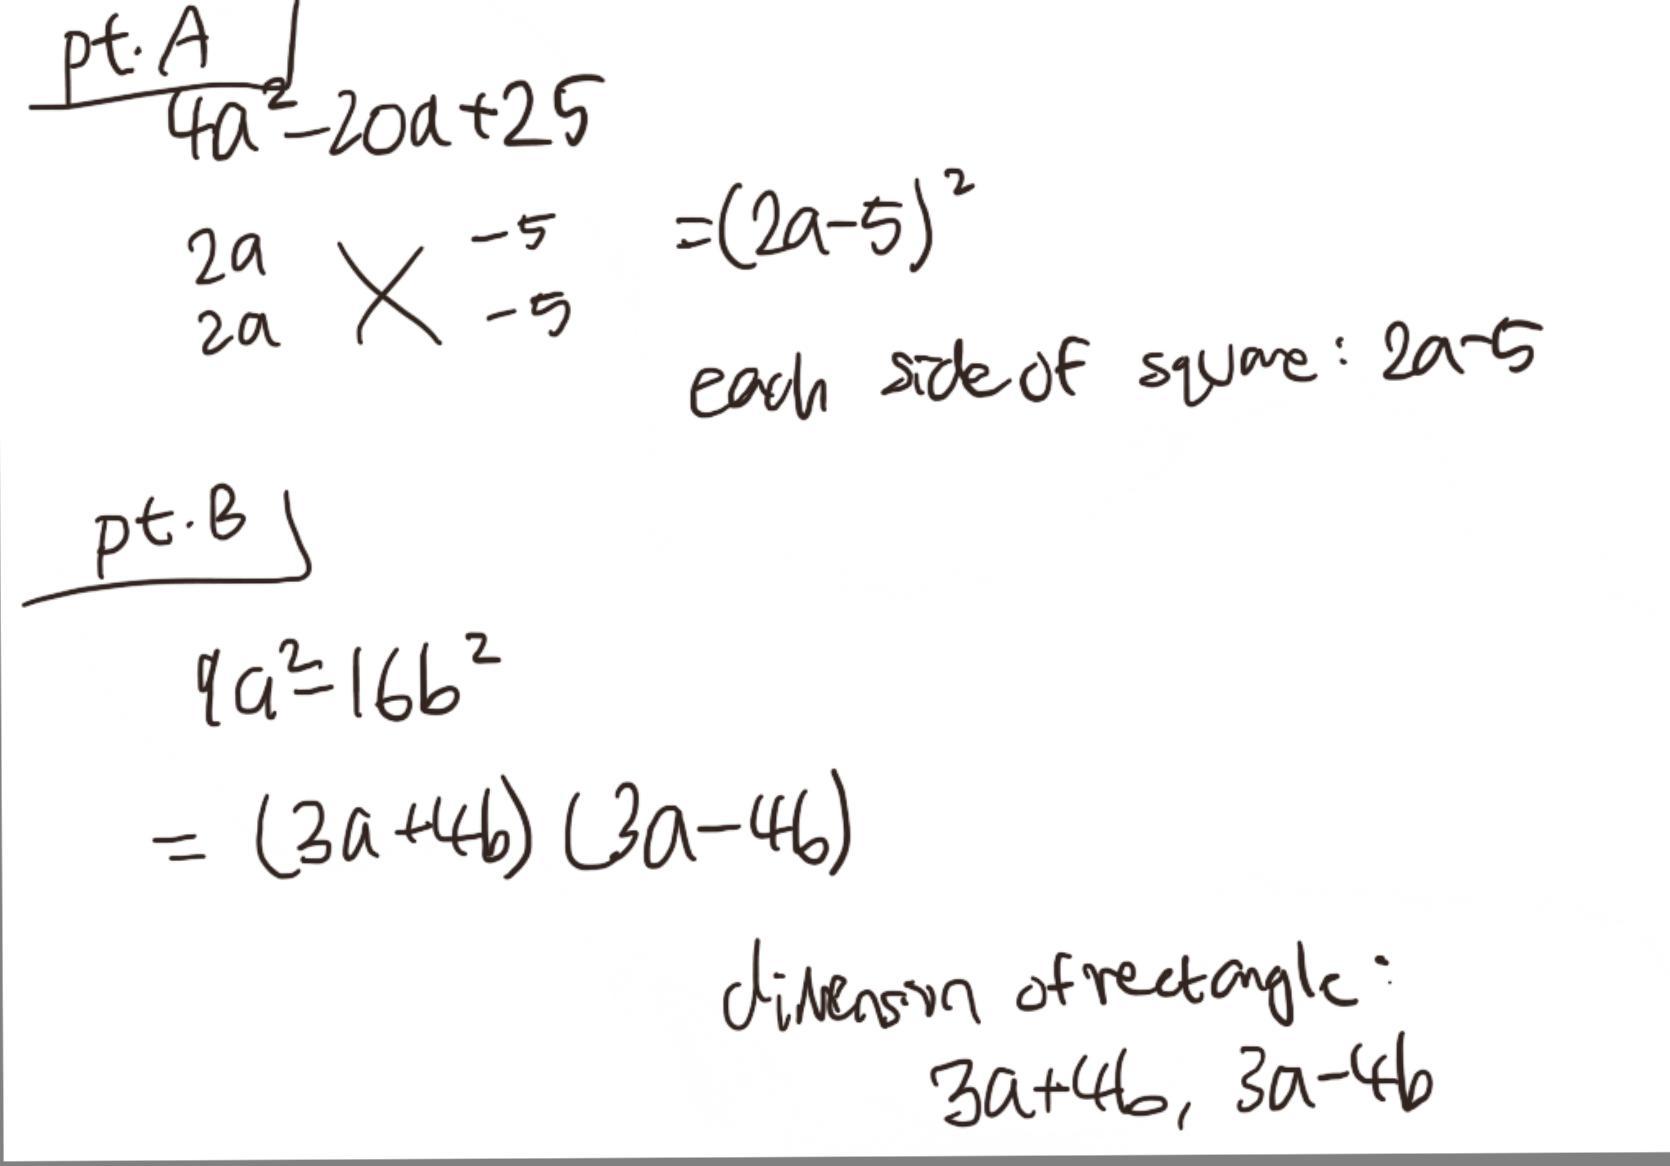 pt. A
4a²-20a+25
2a -5
2a -5
=(2a-5)²
each side of square: 2a-5
pt. B
9a²-16b²
= (3a+4b)(3a-4b)
dimension of rectangle:
3a+4b, 3a-4b